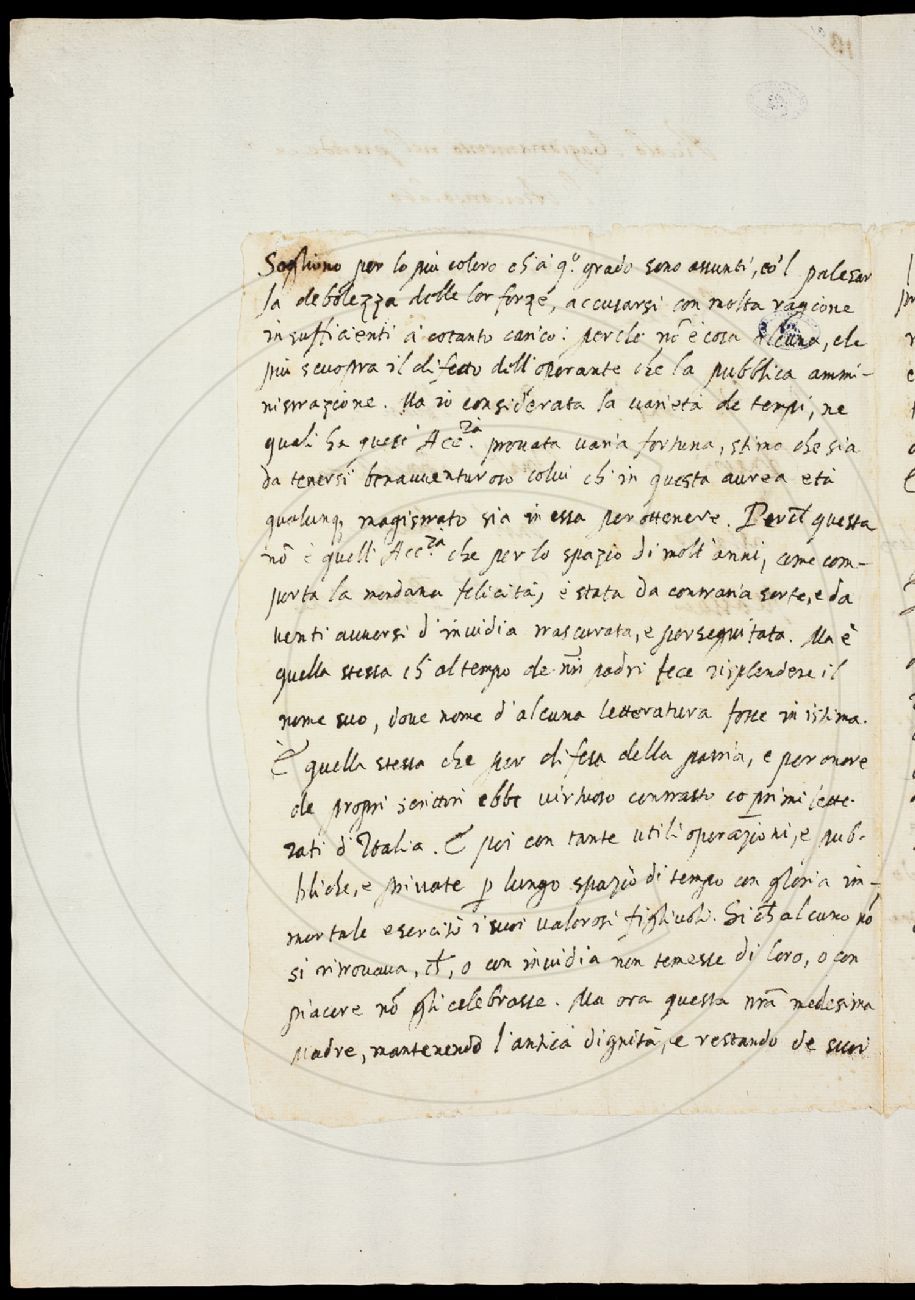 Sogliono per lo più coloro ch' à q.º grado sono assunti, co 'l palesar
la debolezza delle lor forze, accusarsi con molta ragione
insufficienti à cotanto carico: perche nõ è cosa alcuna, che
più scuopra il difetto dell'operante che la pubblica ammi-
nistrazione. Ma io considerata la varietà de tempi, ne
quali ha quest' Acc.ᶻᵃ provata varia fortuna, stimo che sia
da tenersi benavventuroso colui ch' in questa aurea età
qualunq; magistrato sia in essa per ottenere. questa
nõ è quell' Acc.ᶻᵃ che per lo spazio di molt'anni, come com-
porta la mondana felicità, è stata da contraria sorte, e da
venti avversi d'invidia trascurata, e perseguitata. Ma è
quella stessa ch' al tempo de nr̃i padri fece risplendere il
nome suo, dove nome d'alcuna letteratura fosse in istima.
È quella stessa che per difesa della patria, e per onore
de propri scrittori ebbe virtuoso contrasto co primi lette-
rati d'Italia. E poi con tante utili operazioni, e pub-
bliche, e private p lungo spazio di tempo con gloria im-
mortale esercitò i suoi valorosi figlivoli. Si ch̃ alcuno nõ
si ritrovava, ch̃, o con invidia non temesse di loro, o con
piacere nõ gli celebrasse. Ma ora questa nr̃a medesima
Madre, mantenendo l'antica dignità, e restando de suoi